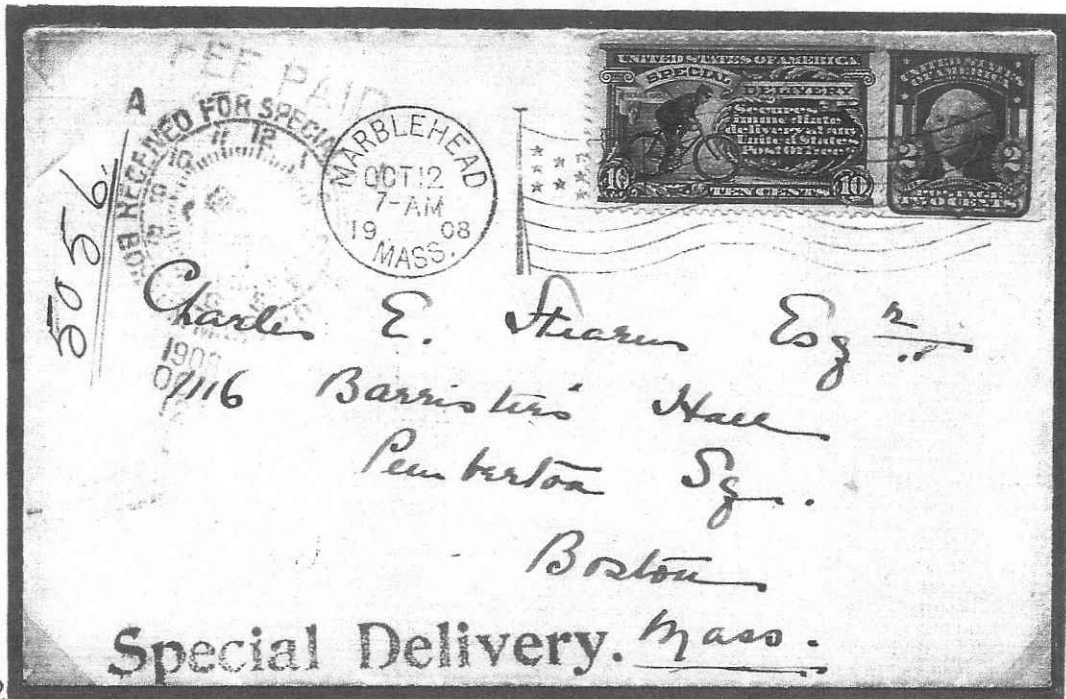 FEE PAID
A
RECEIVED FOR SPECIAL
11 12
5056
MARBLEHEAD
OCT 12
7-AM
19 08
MASS.
UNITED STATES OF AMERICA
SPECIAL
DELIVERY
Secures
immediate
delivery at any
United States
Post Office
10 TEN CENTS 10
UNITED STATES
OF AMERICA
2 2
POSTAGE
TWO CENTS
Charles E. Stearns Esqr
1908
1116 Barristers Hall
Pemberton Sq.
Boston
Mass.
Special Delivery.